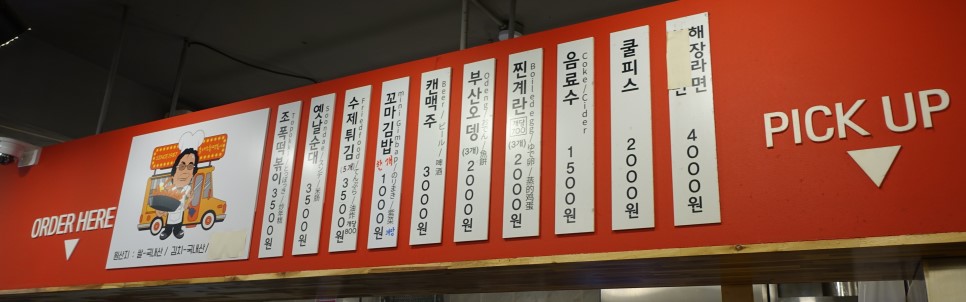 ORDER HERE
원산지 : 쌀-국내산 / 김치-국내산/
조폭떡볶이 3500원
옛날순대 3500원
Soondae/
수제튀김 (5개) 3500원
Fried food/てんぷら/油炸
개당 800
꼬마김밥 한개 1000원
mini Gimbap/のりまき/紫菜
개당
캔맥주 3000원
Beer/ビール/啤酒
부산오뎅 (3개) 2000원
Odeng/おでん/鱼饼
찐계란 개당 800 (3개) 2000원
Boiled egg/ゆで卵/蒸的鸡蛋
음료수 1500원
Coke/Cider
쿨피스 2000원
해장라면 4000원
PICK UP